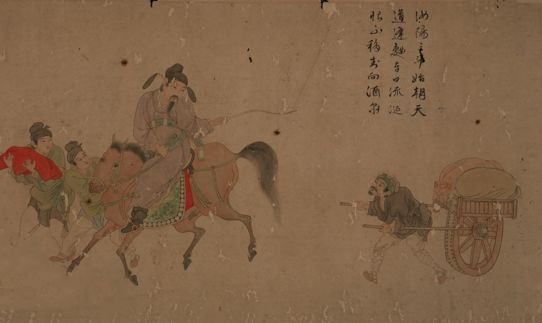 汝陽三斗始朝天
道逢麴車口流涎
恨不移封向酒泉